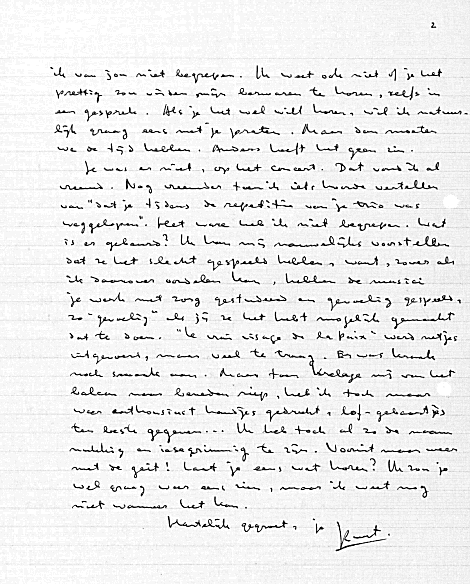 2
ik van jou niet begrepen. Ik weet ook niet of je het
prettig zou vinden mijn bezwaren te horen, zelfs in
een gesprek. Als je het wel wilt horen, wil ik natuur-
lijk graag eens met je praten. Maar dan moeten
we de tijd hebben. Anders heeft het geen zin.
Je was er niet, op het concert. Dat vond ik al
vreemd. Nog vreemder toen ik iets hoorde vertellen
van "dat je tijdens de repetitie van je trio was
weggelopen". Het ware heb ik niet begrepen. Wat
is er gebeurd? Ik kan mij nauwelijks voorstellen
dat ze het slecht gespeeld hebben, want, zover als
ik daarover oordelen kan, hebben de musici
je werk met zorg gestudeerd en gevoelig gespeeld,
zo "gevoelig" als jij ze het hebt mogelijk gemaakt
dat te doen. "Le vrai visage de la Paix" werd netjes
uitgevoerd, maar veel te traag. Er was kraak
noch smaak aan. Maar toen Kelage mij van het
balcon naar beneden riep, heb ik toch maar
weer enthousiast handjes gedrukt, lof-gebaartjes
ten beste gegeven... Ik heb toch al zo de naam
nukkig en iesegrimmig te zijn. Vooruit maar weer
met de geit! Laat je eens wat horen? Ik zou je
wel graag weer eens zien, maar ik weet nog
niet wanneer het kan.
Hartelijk gegroet, je